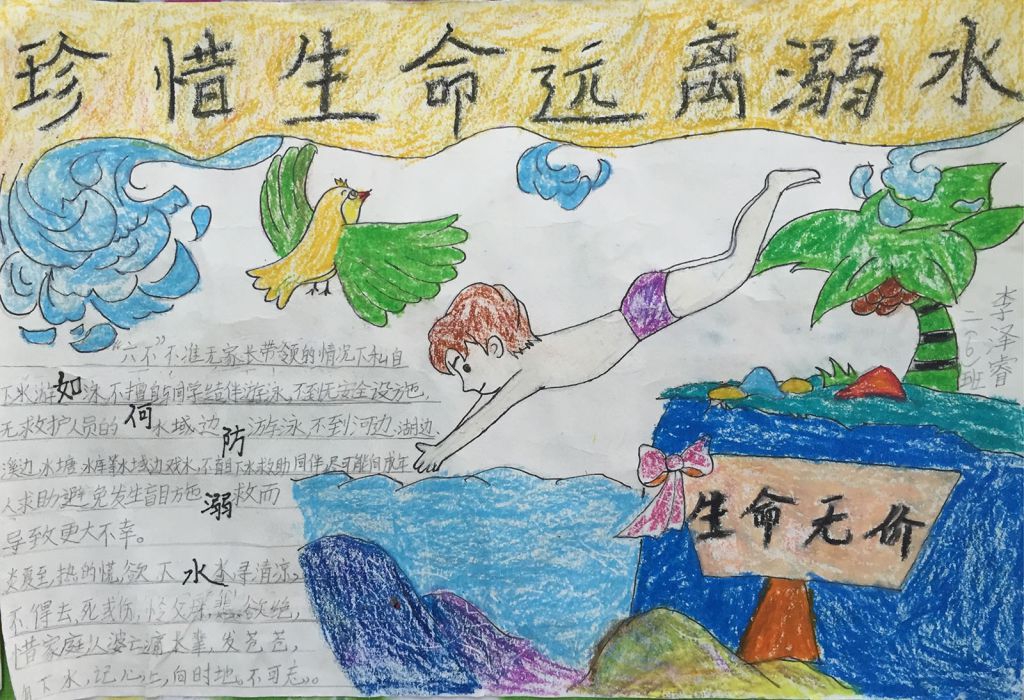 珍惜生命远离溺水
李泽睿
二(6)班
如何防溺水
"六不"不准无家长带领的情况下私自
下水游泳,不擅自与同学结伴游泳,不到无安全设施,
无救护人员的水域边游泳,不到河边湖边、
溪边、水塘、水库等水域边戏水,不盲目下水救助同伴尽可能向成年
人求助避免发生盲目施救而
导致更大不幸。
炎夏至,热的慌,欲下水寻清凉,
不得去,死或伤,怜父母悲欲绝,
惜家庭
下水,记心上,向时地,不可
生命无价